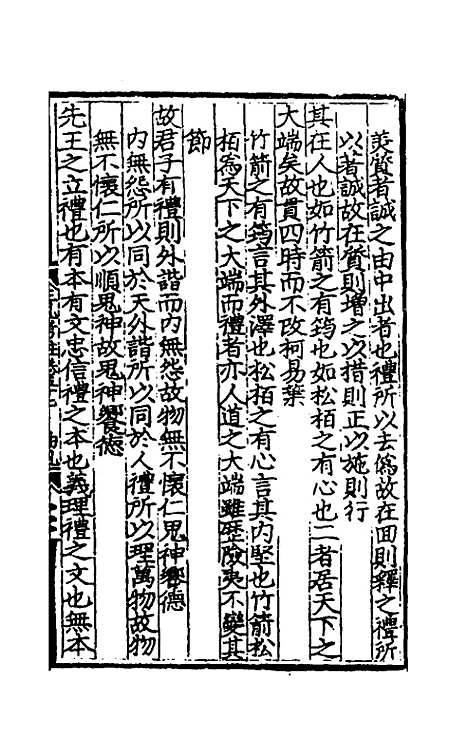 美質者誠之由中出者也禮所以去僞故在面則釋之禮所
以著誠故在質則增之以措則正以施則行
其在人也如竹箭之有筠也如松栢之有心也二者居天下之
大端矣故貫四時而不改柯易葉
竹箭之有筠言其外澤也松栢之有心言其内堅也竹箭松
栢爲天下之大端而禮者亦人道之大端雖歷險夷不變其
節
故君子有禮則外諧而内無怨故物無不懷仁鬼神饗德
内無怨所以同於天外諧所以同於人禮所以理萬物故物
無不懷仁所以順鬼神故鬼神饗德
先王之立禮也有本有文忠信禮之本也義理禮之文也無本